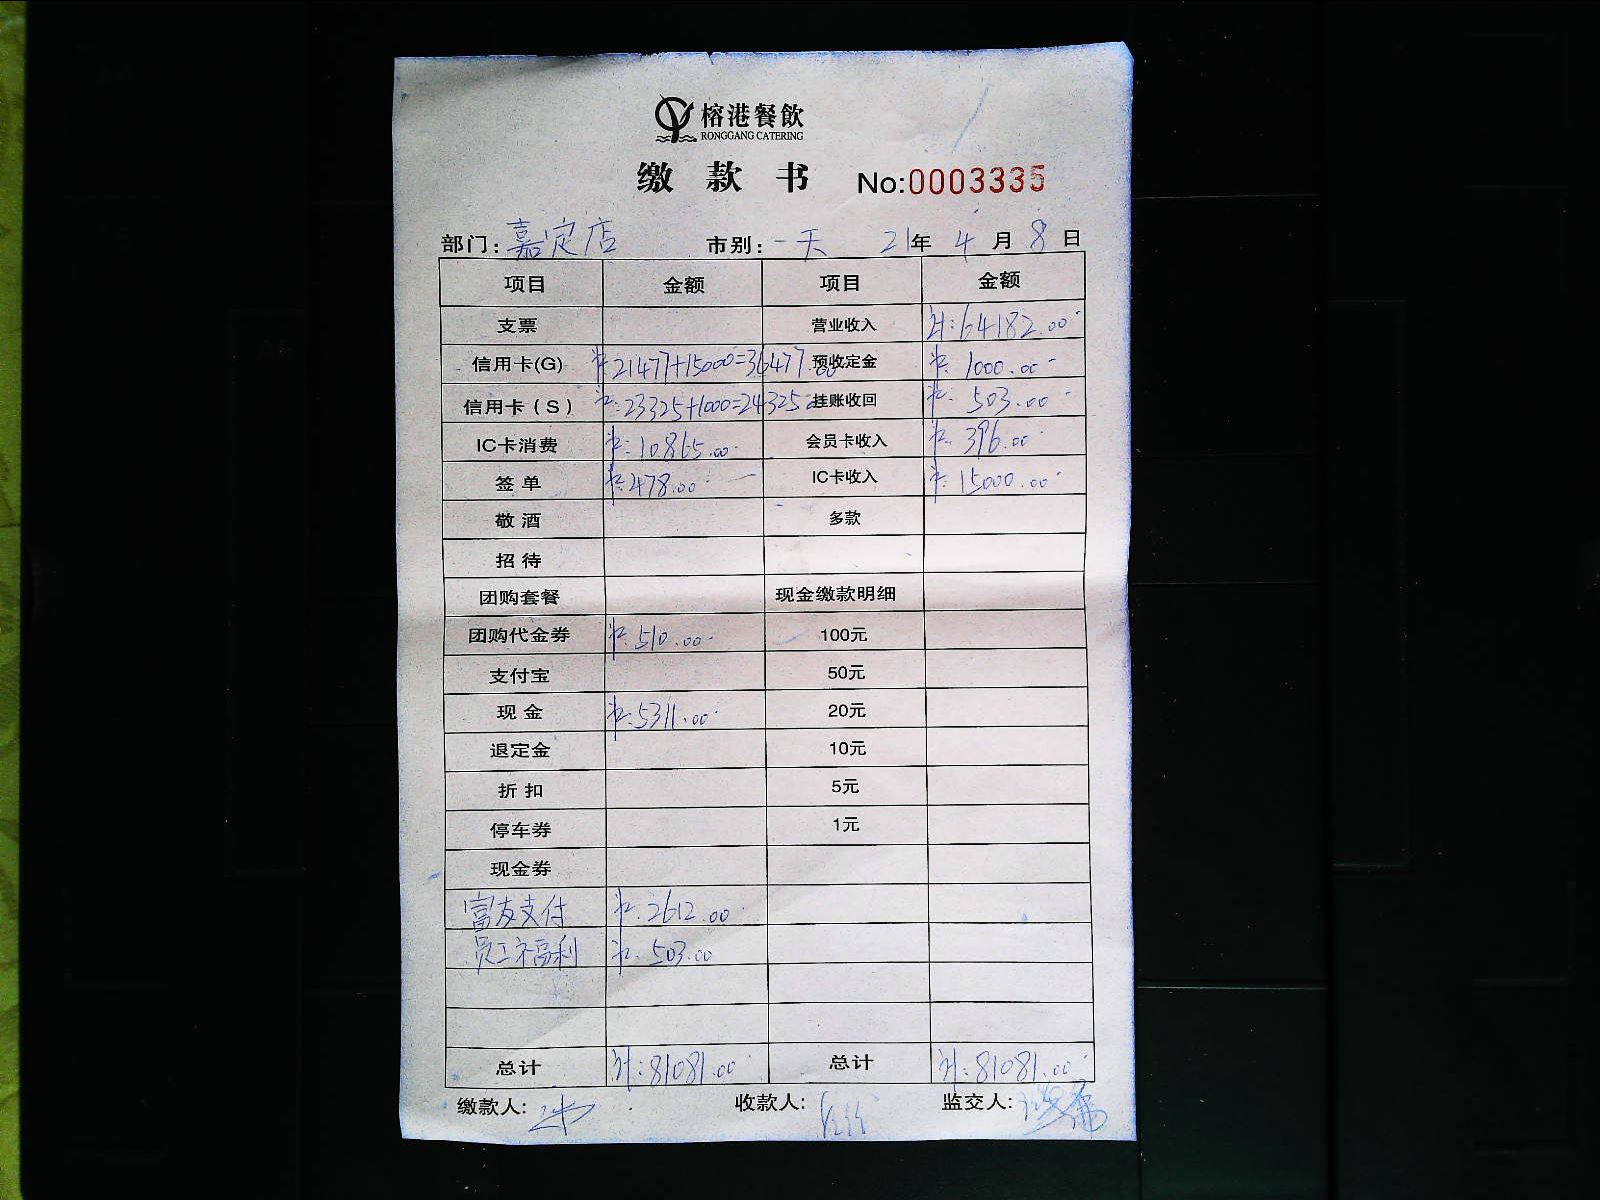 榕港餐飲
RONGGANG CATERING
缴款书 No:0003335
部门: 嘉定店 市别: 一天 21年 4月 8日
项目 金额 项目 金额
支票 营业收入 计:64182.00
信用卡(G) 21477+15000=36477.00 预收定金 1000.00
信用卡(S) 23325+1000=24325 挂账收回 503.00
IC卡消费 10865.00 会员卡收入 396.00
签单 478.00 IC卡收入 15000.00
敬酒 多款
招待
团购套餐 现金缴款明细
团购代金券 510.00 100元
支付宝 50元
现金 5311.00 20元
退定金 10元
折扣 5元
停车券 1元
现金券
富友支付 2612.00
员工福利 503.00
总计 计:81081.00 总计 计:81081.00
缴款人: 收款人: 监交人: